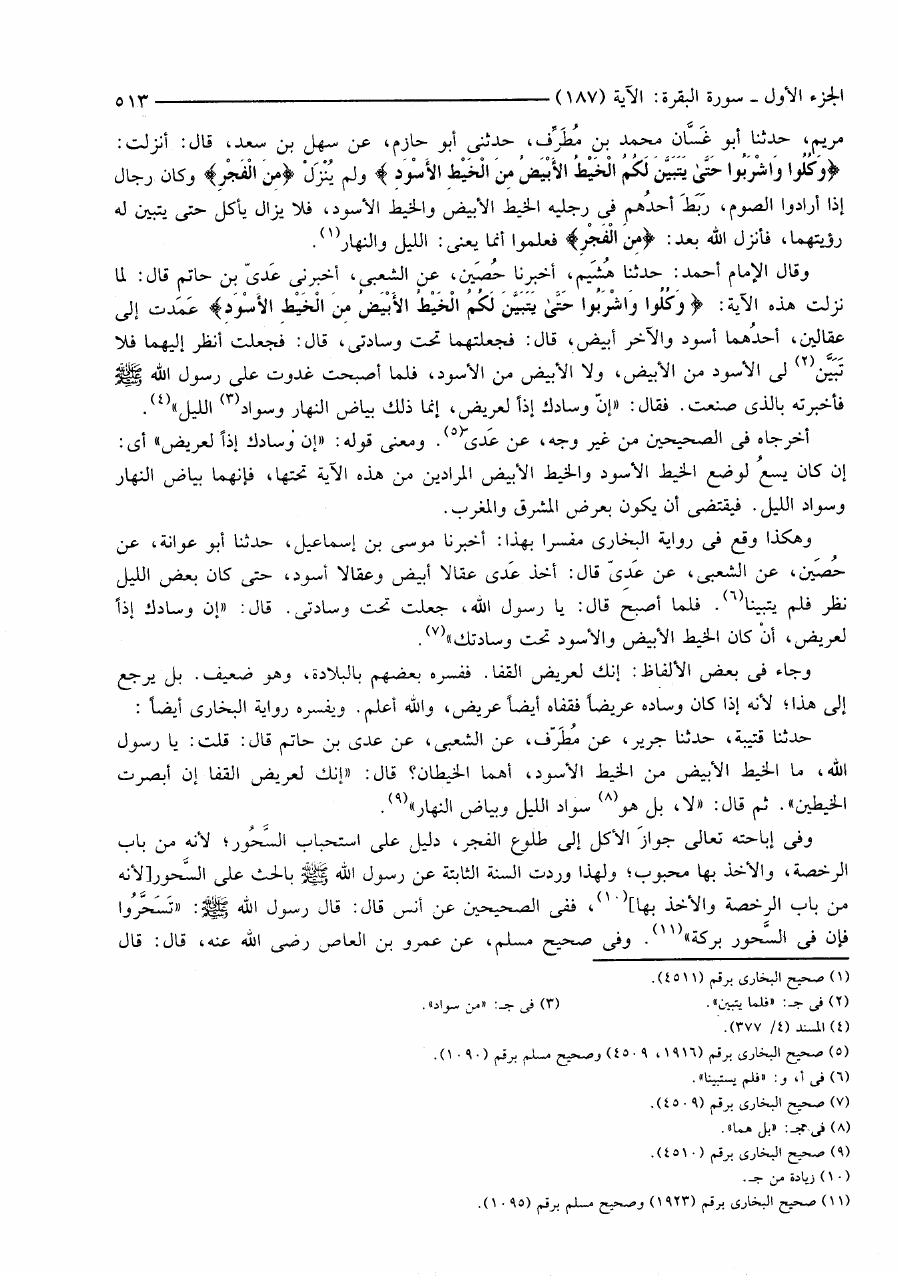 الجزء الأول ـ سورة البقرة: الآية (١٨٧) ٥١٣
مريم، حدثنا أبو غَسَّان محمد بن مُطَرِّف، حدثنى أبو حازم، عن سهل بن سعد، قال: أنزلت:
﴿وَكُلُوا وَاشْرَبُوا حَتَّىٰ يَتَبَيَّنَ لَكُمُ الْخَيْطُ الأَبْيَضُ مِنَ الْخَيْطِ الأَسْوَدِ ﴾ ولم يُنْزَلْ ﴿مِنَ الْفَجْرِ﴾ وكان رجال
إذا أرادوا الصوم، ربَطَ أحدُهم فى رجليه الخيط الأبيض والخيط الأسود، فلا يزال يأكل حتى يتبين له
رؤيتهما، فأنزل الله بعد: ﴿مِنَ الْفَجْرِ﴾ فعلموا أنما يعنى: الليل والنهار(١).
وقال الإمام أحمد: حدثنا هُشَيم، أخبرنا حُصَين، عن الشعبى، أخبرنى عَدىّ بن حاتم قال: لما
نزلت هذه الآية: ﴿ وَكُلُوا وَاشْرَبُوا حَتَّىٰ يَتَبَيَّنَ لَكُمُ الْخَيْطُ الأَبْيَضُ مِنَ الْخَيْطِ الأَسْوَدِ﴾ عَمَدت إلى
عقالين، أحدُهما أسود والآخر أبيض، قال: فجعلتهما تحت وسادتى، قال: فجعلت أنظر إليهما فلا
تَبَيَّن(٢) لى الأسود من الأبيض، ولا الأبيض من الأسود، فلما أصبحت غدوت على رسول الله ﷺ
فأخبرته بالذى صنعت. فقال: «إنّ وسادك إذاً لعريض، إنما ذلك بياض النهار وسواد(٣) الليل»(٤).
أخرجاه فى الصحيحين من غير وجه، عن عَدى(٥). ومعنى قوله: «إن وسادك إذاً لعريض» أى:
إن كان يسعُ لوضع الخيط الأسود والخيط الأبيض المرادين من هذه الآية تحتها، فإنهما بياض النهار
وسواد الليل. فيقتضى أن يكون بعرض المشرق والمغرب.
وهكذا وقع فى رواية البخارى مفسرا بهذا: أخبرنا موسى بن إسماعيل، حدثنا أبو عوانة، عن
حُصَين، عن الشعبى، عن عَدىّ قال: أخذ عَدى عقالا أبيض وعقالا أسود، حتى كان بعض الليل
نظر فلم يتبينا(٦). فلما أصبح قال: يا رسول الله، جعلت تحت وسادتى. قال: «إن وسادك إذاً
لعريض، أنْ كان الخيط الأبيض والأسود تحت وسادتك»(٧).
وجاء فى بعض الألفاظ: إنك لعريض القفا. ففسره بعضهم بالبلادة، وهو ضعيف. بل يرجع
إلى هذا؛ لأنه إذا كان وساده عريضاً فقفاه أيضاً عريض، والله أعلم. ويفسره رواية البخارى أيضاً :
حدثنا قتيبة، حدثنا جرير، عن مُطَرِّف، عن الشعبى، عن عدى بن حاتم قال: قلت: يا رسول
الله، ما الخيط الأبيض من الخيط الأسود، أهما الخيطان؟ قال: «إنك لعريض القفا إن أبصرت
الخيطين». ثم قال: «لا، بل هو(٨) سواد الليل وبياض النهار»(٩).
وفى إباحته تعالى جوازَ الأكل إلى طلوع الفجر، دليل على استحباب السَّحُور؛ لأنه من باب
الرخصة، والأخذ بها محبوب؛ ولهذا وردت السنة الثابتة عن رسول الله ﷺ بالحث على السَّحور[لأنه
من باب الرخصة والأخذ بها](١٠)، ففى الصحيحين عن أنس قال: قال رسول الله ﷺ: «تَسَحَّرُوا
فإن فى السَّحور بركة»(١١). وفى صحيح مسلم، عن عمرو بن العاص رضى الله عنه، قال: قال
(١) صحيح البخارى برقم (٤٥١١).
(٢) فى جـ: «فلما يتبين». (٣) فى جـ: «من سواد».
(٤) المسند (٤/ ٣٧٧).
(٥) صحيح البخارى برقم (١٩١٦، ٤٥٠٩) وصحيح مسلم برقم (١٠٩٠).
(٦) فى أ، و: «فلم يستبينا».
(٧) صحيح البخارى برقم (٤٥٠٩).
(٨) فى جـ: «بل هما».
(٩) صحيح البخارى برقم (٤٥١٠).
(١٠) زيادة من جـ.
(١١) صحيح البخارى برقم (١٩٢٣) وصحيح مسلم برقم (١٠٩٥).